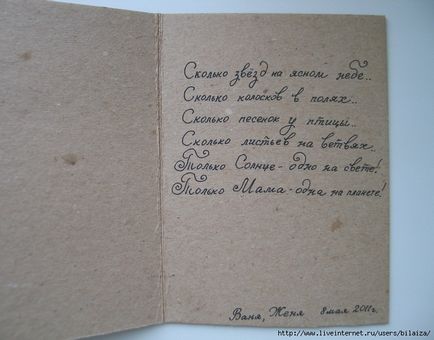 Сколько звёзд на ясном небе..
Сколько колосков в полях..
Сколько песенок у птицы..
Сколько листьев на ветвях..
Только Солнце - одно на свете!
Только Мама - одна на планете!
Ваня, Женя 8 мая 2011г.
http://www.liveinternet.ru/users/bilaiza/